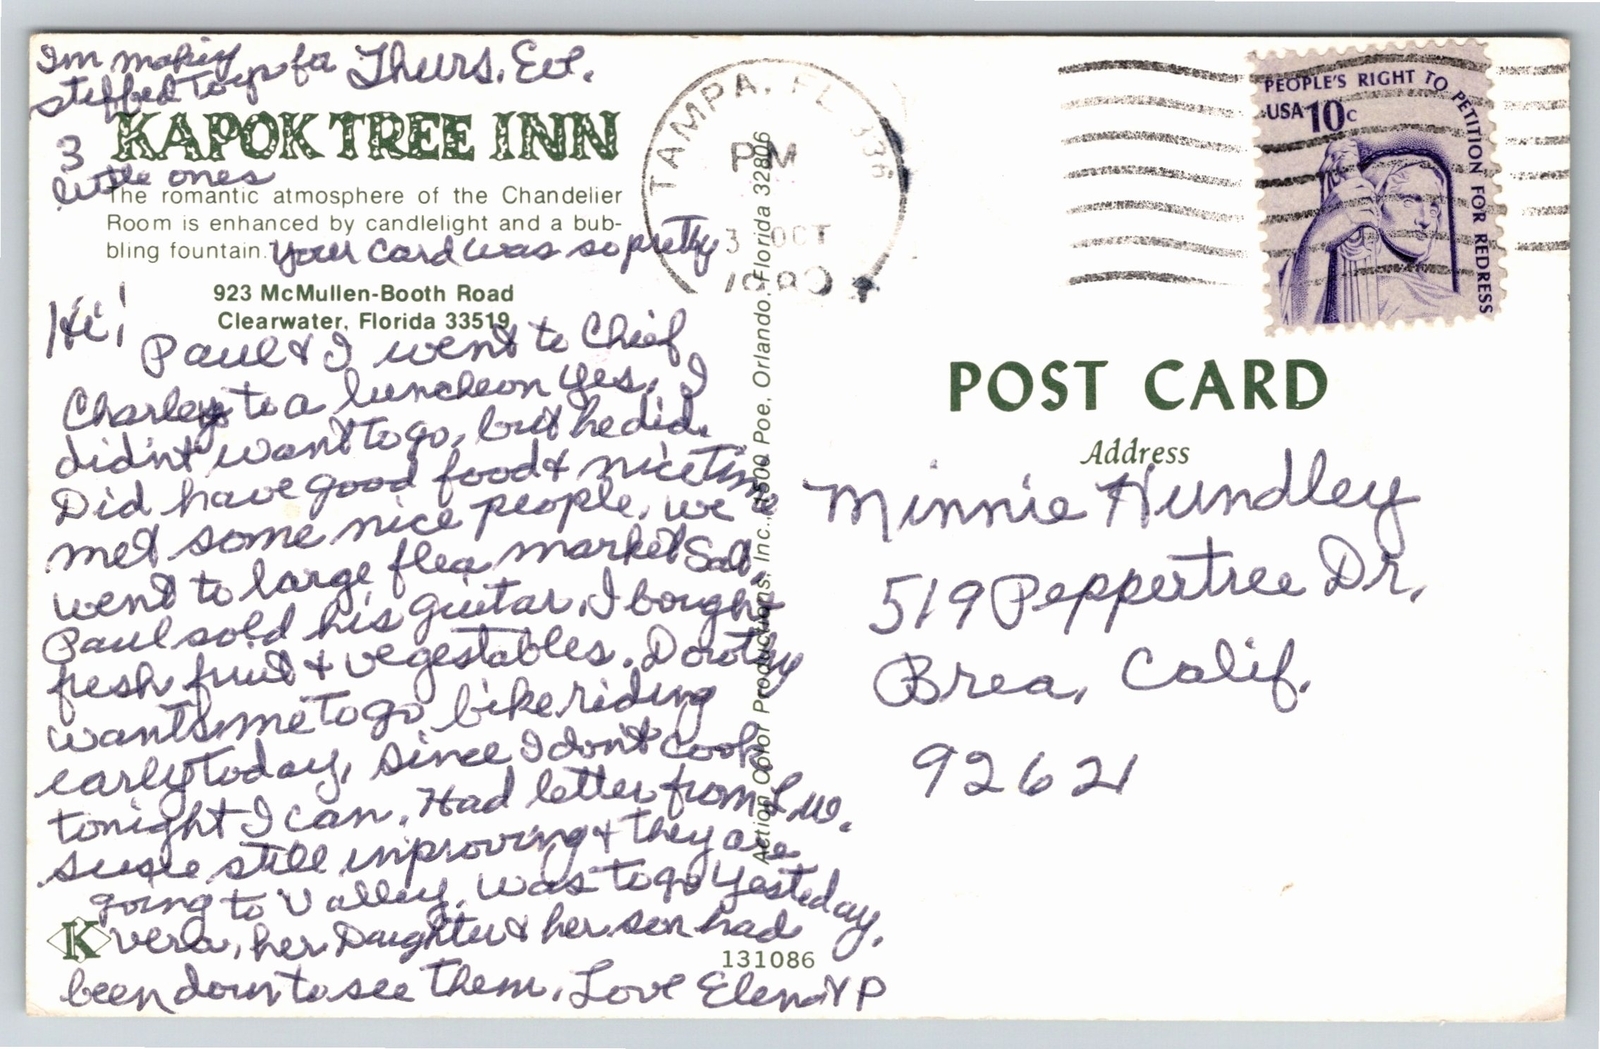 Im making
stuffed Toys for Thurs. Eve.
3
little ones
KAPOK TREE INN
The romantic atmosphere of the Chandelier
Room is enhanced by candlelight and a bub-
bling fountain.
Your card was so pretty
923 McMullen-Booth Road
Clearwater, Florida 33519
Hi!
Paul & I went to Chief
Charleys to a luncheon yes, I
didn't want to go, but he did.
Did have good food & nice Time
met some nice people, we
went to large flea market Sat.
Paul sold his guitar, I bought
fresh fruit & vegestables. Dorothy
wants me To go bike riding
early today, since I don't cook
tonight I can. Had letter from Lu.
Susie still inproving & they are
going to Valley, was to go yesteday,
vera, her Daughter & her son had
been down to see them, Love Elena & P
K
131086
Action Color Productions, Inc., 1500 Poe, Orlando, Florida 32806
TAMPA, FL 336
PM
3 OCT
PEOPLE'S RIGHT TO PETITION FOR REDRESS
USA 10c
POST CARD
Address
Minnie Hundley
519 Peppertree Dr,
Brea, Calif.
92621